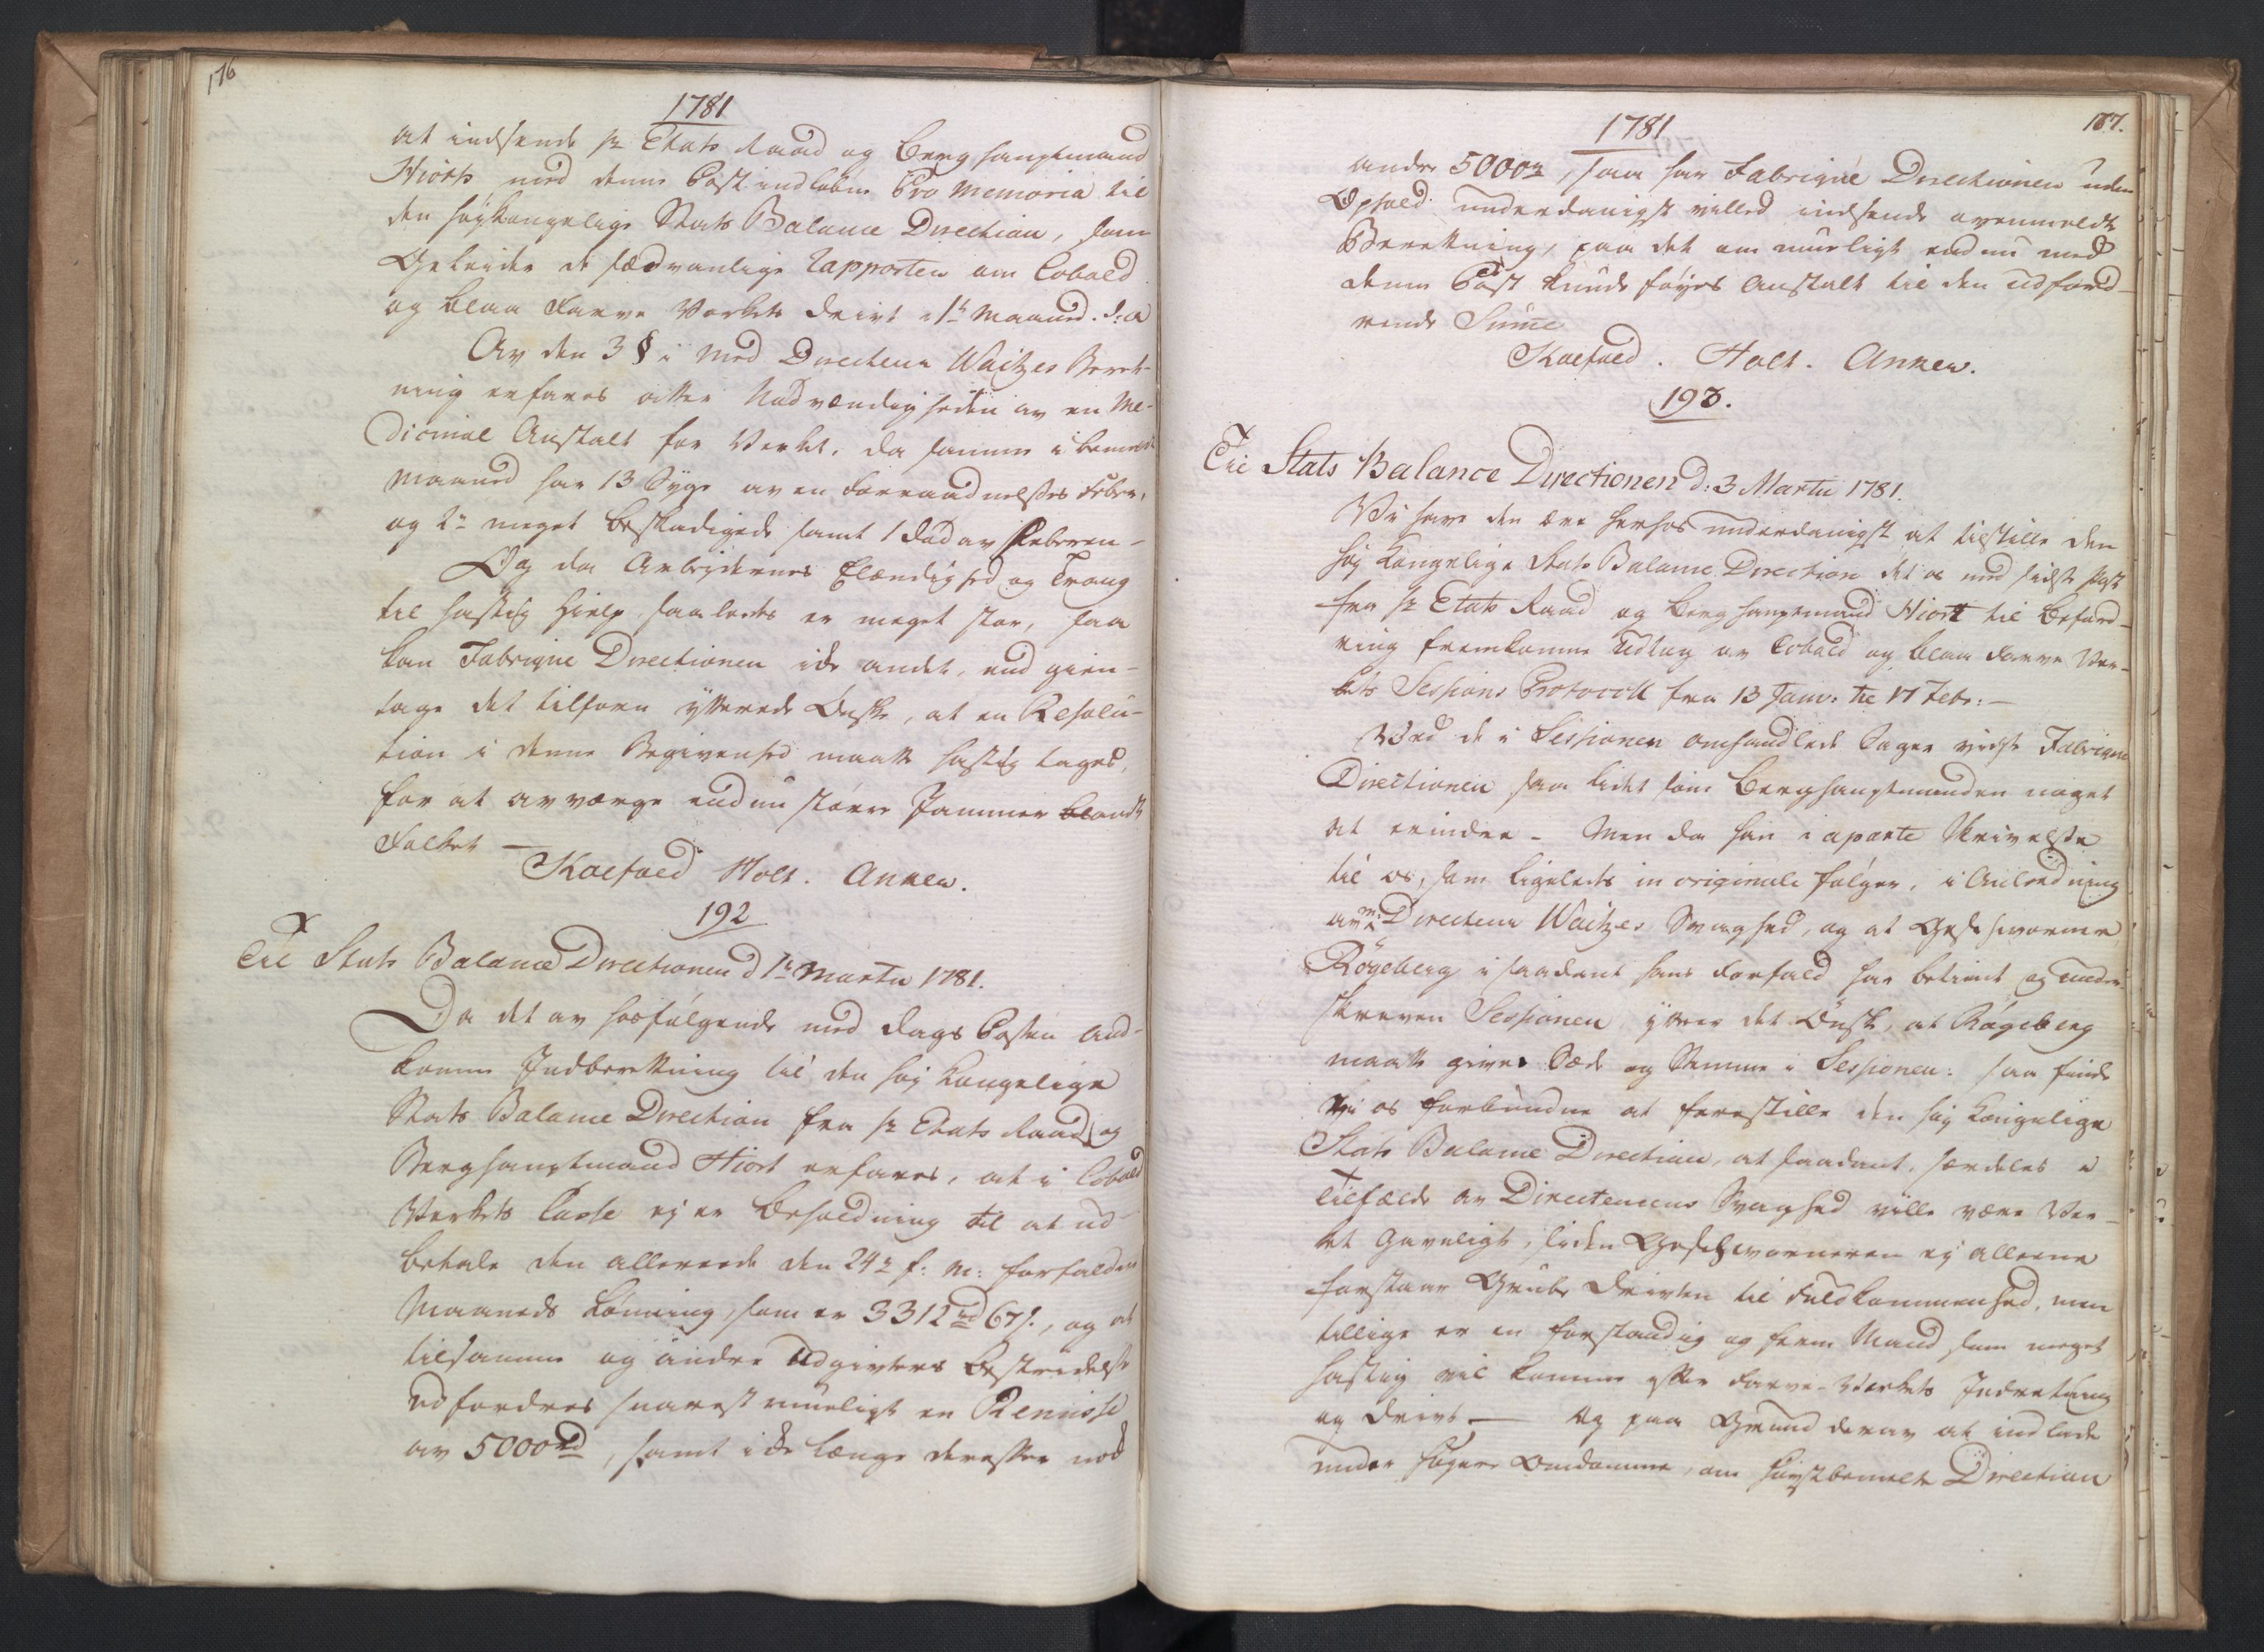 176
1781
at indsende Hr Etats Raad og Berghauptmand
Hiorts med denne Post indløbne Pro Memoria til
den høykongelige Stats Balance Direction, som
Geleider de sædvanlige Rapporter om Cobold
og blaa Farve Verkets Drivt i 1te Maaned. d: a
Av den 3 § i Med Directeur Waitzes Beret-
ning erfares atter Nødvændigheden av en Me-
dicinal Anstalt for Verket, da samme i bemelte
Maaned har 13 Syge av en Forraadnelses Feber,
og 2de meget beskadigede samt 1 død av Feberen –
Og da Arbeydernes Elændighed og Trang
til hastig Hielp saaledes er meget stor, saa
kan Fabrique Directionen ikke andet, end gien-
tage det tilforn yttrede Ønske, at en Resolu-
tion i denne Begivenhed maatte hastig tages,
for at avværge endnu større Jammer blandt
Folket –
Koefoed Holt. Anker.
192
Til Stats Balance Directionen d 1te Martii 1781.
Da det av hosfølgende med Dags Posten and-
komne Indberetning til den høy Kongelige
Stats Balance Direction fra Hr Etats Raad og
Berghauptmand Hiort erfares, at i Cobold
Verkets Casse ej er Beholdning til at ud-
betale den allereede den 24de f: M: forfaldne
Maaneds Lønning, som er 3312 rd 67 s., og at
tilsamme og andre Udgivters Bestridelse
udfordres snarest mueligt en Remisse
av 5000 rd, samt ikke længe derefter nok
1781
177.
andre 5000 rd, saa har Fabriqué Directionen uden
Ophold underdanigst villed indsende ovenmeldte
Beretning, paa det om mueligt endnu med
denne Post kunde føyes Anstalt til den udford-
rende Summe
Koefoed. Holt. Anker.
193.
Til Stats Balance Directionen d: 3 Martii 1781.
Vi have den ære herhos underdanigst at tilstille den
høy Kongelige Stats Balance Direction det os med sidste Post
fra Hr Etats Raad og Berghauptmand Hiort til Beford-
ring fremkomne Udtog av Cobold og blaa Farve Ver-
kets Sessions Protocoll fra 13 Janv. til 17 Febr: –
Ved de i Sessionen omhandlede Sager vidste Fabrique
Directionen saa lidet som Berghauptmanden noget
at erindre – Men da han i aparte Skrivelse
til os, som ligeledes in originali følger, i Anledning
av m: Directeur Waitzes Svaghed, og at Geschworne
Røgeberg i saadant hans Forfald har betient og under-
skreven Sessionen yttrer det Ønske, at Røgeberg
maatte gives Sæde og Stemme i Sessionen: saa finde
Vi os forbundne at forestille den høy Kongelige
Stats Balance Direction, at saadant, særdeles i
Tilfælde av Directeurens Svaghed ville være Ver-
ket Gavnligt, siden Geschworneren ej alleene
forstaar Grube Drivten til Fuldkommenhed, men
tillige er en forstandig og ferm Mand, som meget
hastig vil komme efter Farve-Verkets Indretning
og Drivt – Og paa Grund derav at indlade
under høyere Omdømme, om høystbemelte Direction